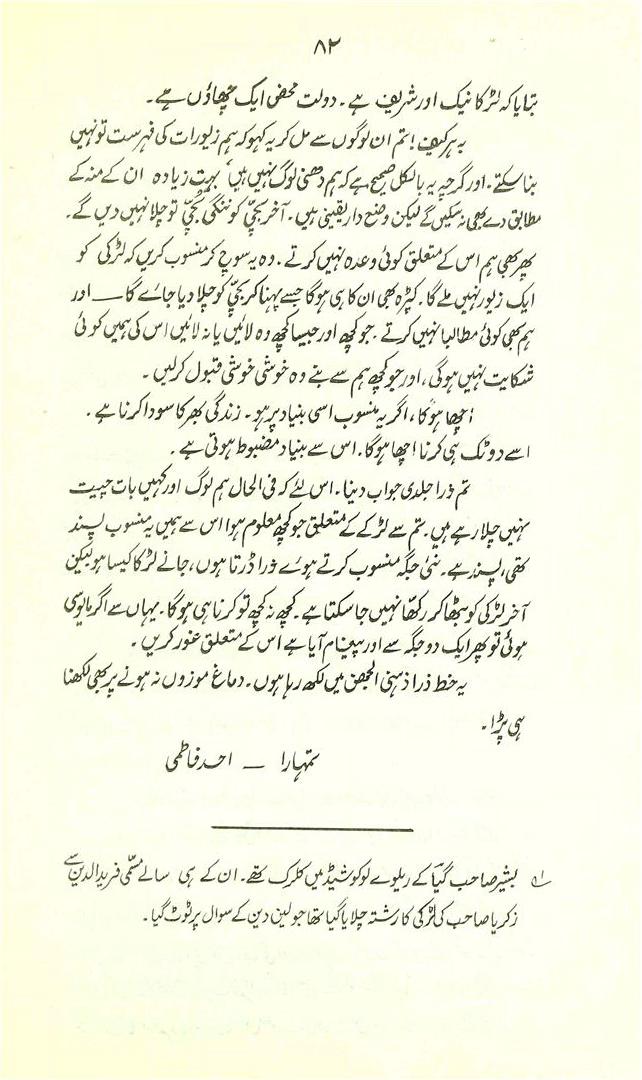 ۸۲
بتایا کہ لڑکا نیک اور شریف ہے۔ دولت محض ایک چھاؤں ہے۔
بہرکیف! تم ان لوگوں سے مل کر یہ کہو کہ ہم زیورات کی فہرست تو نہیں
بنا سکتے۔ اور گرچہ یہ بالکل صحیح ہے کہ ہم دھنی لوگ نہیں ہیں، بہت زیادہ ان کے منہ کے
مطابق دے بھی نہ سکیں گے لیکن وضع دار یقینی ہیں۔ آخر بچیّ کو ننگی بُچیّ تو چلا نہیں دیں گے۔
پھر بھی ہم اس کے متعلق کوئی وعدہ نہیں کرتے۔ وہ یہ سوچ کر منسوب کریں کہ لڑکی کو
ایک زیور نہیں ملے گا۔ کپڑہ بھی ان کا ہی ہوگا جسے پہنا کر بچیّ کو چلا دیا جائے گا — اور
ہم بھی کوئی مطالبا نہیں کرتے۔ جو کچھ اور جیسا کچھ وہ لائیں یا نہ لائیں اس کی ہمیں کوئی
شکایت نہیں ہوگی، اور جو کچھ ہم سے بنے وہ خوشی خوشی قبول کرلیں۔
اچھا ہوگا، اگر یہ منسوب اسی بنیاد پر ہو۔ زندگی بھر کا سودا کرنا ہے۔
اسے دو ٹک ہی کرنا اچھا ہوگا۔ اس سے بنیاد مضبوط ہوتی ہے۔
تم ذرا جلدی جواب دینا۔ اس لئے کہ فی الحال ہم لوگ اور کہیں بات چیت
نہیں چلا رہے ہیں۔ تم سے لڑکے کے متعلق جو کچھ معلوم ہوا اس سے ہمیں یہ منسوب پسند
تھی، پسند ہے۔ نئی جگہ منسوب کرتے ہوئے ذرا ڈرتا ہوں، جانے لڑکا کیسا ہو لیکن
آخر لڑکی کو بیٹھا کر رکھا نہیں جا سکتا ہے۔ کچھ نہ کچھ تو کرنا ہی ہوگا۔ یہاں سے اگر مایوسی
ہوئی تو پھر ایک دو جگہ سے اور پیغام آیا ہے اس کے متعلق غور کریں۔
یہ خط ذرا ذہنی الجھن میں لکھ رہا ہوں۔ دماغ موزوں نہ ہونے پر بھی لکھنا
ہی پڑا۔
تمہارا — احمد فاطمی
۱؎ بشیر صاحب گیا کے ریلوے لوکو شیڈ میں کلرک تھے۔ ان کے ہی سالے مسمّی فرید الدین سے
زکریا صاحب کی لڑکی کا رشتہ چلایا گیا تھا جو لین دین کے سوال پر ٹوٹ گیا۔